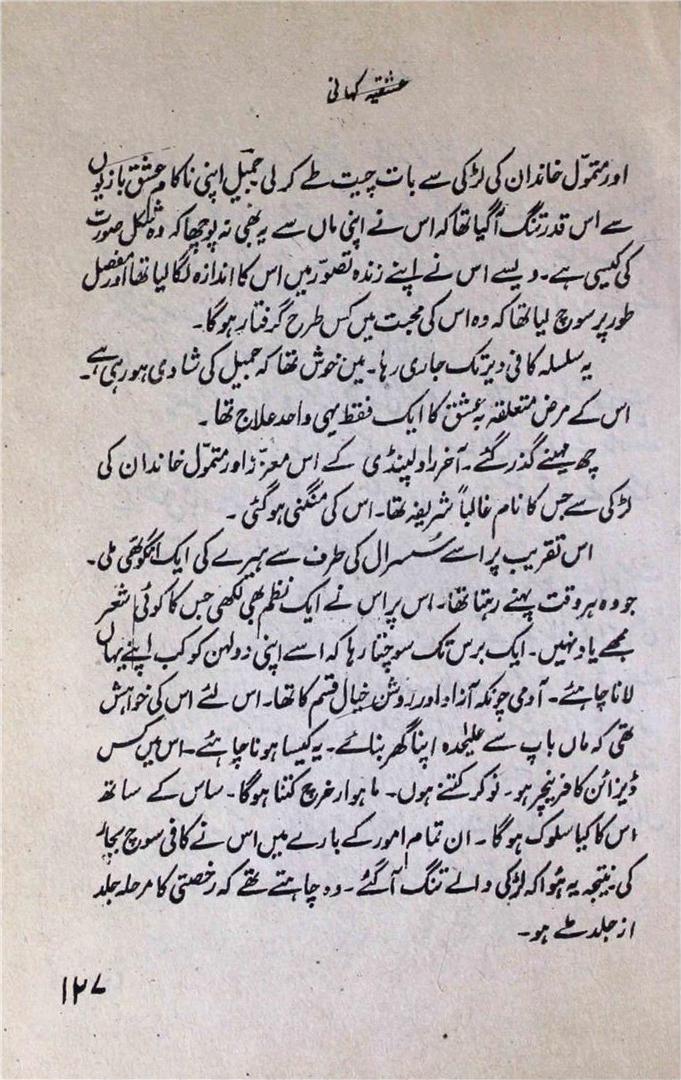 عشقیہ کہانی
اور متموّل خاندان کی لڑکی سے بات چیت طے کر لی جمیل اپنی ناکام عشق بازیوں
سے اس قدر تنگ آگیا تھا کہ اس نے اپنی ماں سے یہ بھی نہ پوچھا کہ وہ شکل صورت
کی کیسی ہے۔ ویسے اس نے اپنے زندہ تصوّر میں اس کا اندازہ لگا لیا تھا اور مفصل
طور پر سوچ لیا تھا کہ وہ اس کی محبت میں کس طرح گرفتار ہوگا۔
یہ سلسلہ کافی دیر تک جاری رہا۔ میں خوش تھا کہ جمیل کی شادی ہو رہی ہے۔
اس کے مرض متعلقہ بہ عشق کا ایک فقط یہی واحد علاج تھا۔
چھ مہینے گذر گئے۔ آخر راولپنڈی کے اس معزز اور متموّل خاندان کی
لڑکی سے جس کا نام غالباً شریفہ تھا۔ اس کی منگنی ہو گئی۔
اس تقریب پر اسے سُسرال کی طرف سے ہیرے کی ایک انگوٹھی ملی۔
جو وہ ہر وقت پہنے رہتا تھا۔ اس پر اس نے ایک نظم بھی لکھی جس کا کوئی شعر
مجھے یاد نہیں۔ ایک برس تک سوچتا رہا کہ اسے اپنی دولہن کو کب اپنے یہاں
لانا چاہئے۔ آدمی چونکہ آزاد اور روشن خیال قسم کا تھا۔ اس لئے اس کی خواہش
تھی کہ ماں باپ سے علیٰحدہ اپنا گھر بنائے۔ یہ کیسا ہونا چاہئے۔ اس میں کس
ڈیزائن کا فرنیچر ہو۔ نوکر کتنے ہوں۔ ماہوار خرچ کتنا ہوگا۔ ساس کے ساتھ
اس کا کیا سلوک ہوگا۔ ان تمام امور کے بارے میں اس نے کافی سوچ بچار
کی نتیجہ یہ ہوا کہ لڑکی والے تنگ آگئے۔ وہ چاہتے تھے کہ رخصتی کا مرحلہ جلد
از جلد طے ہو۔
۱۲۷